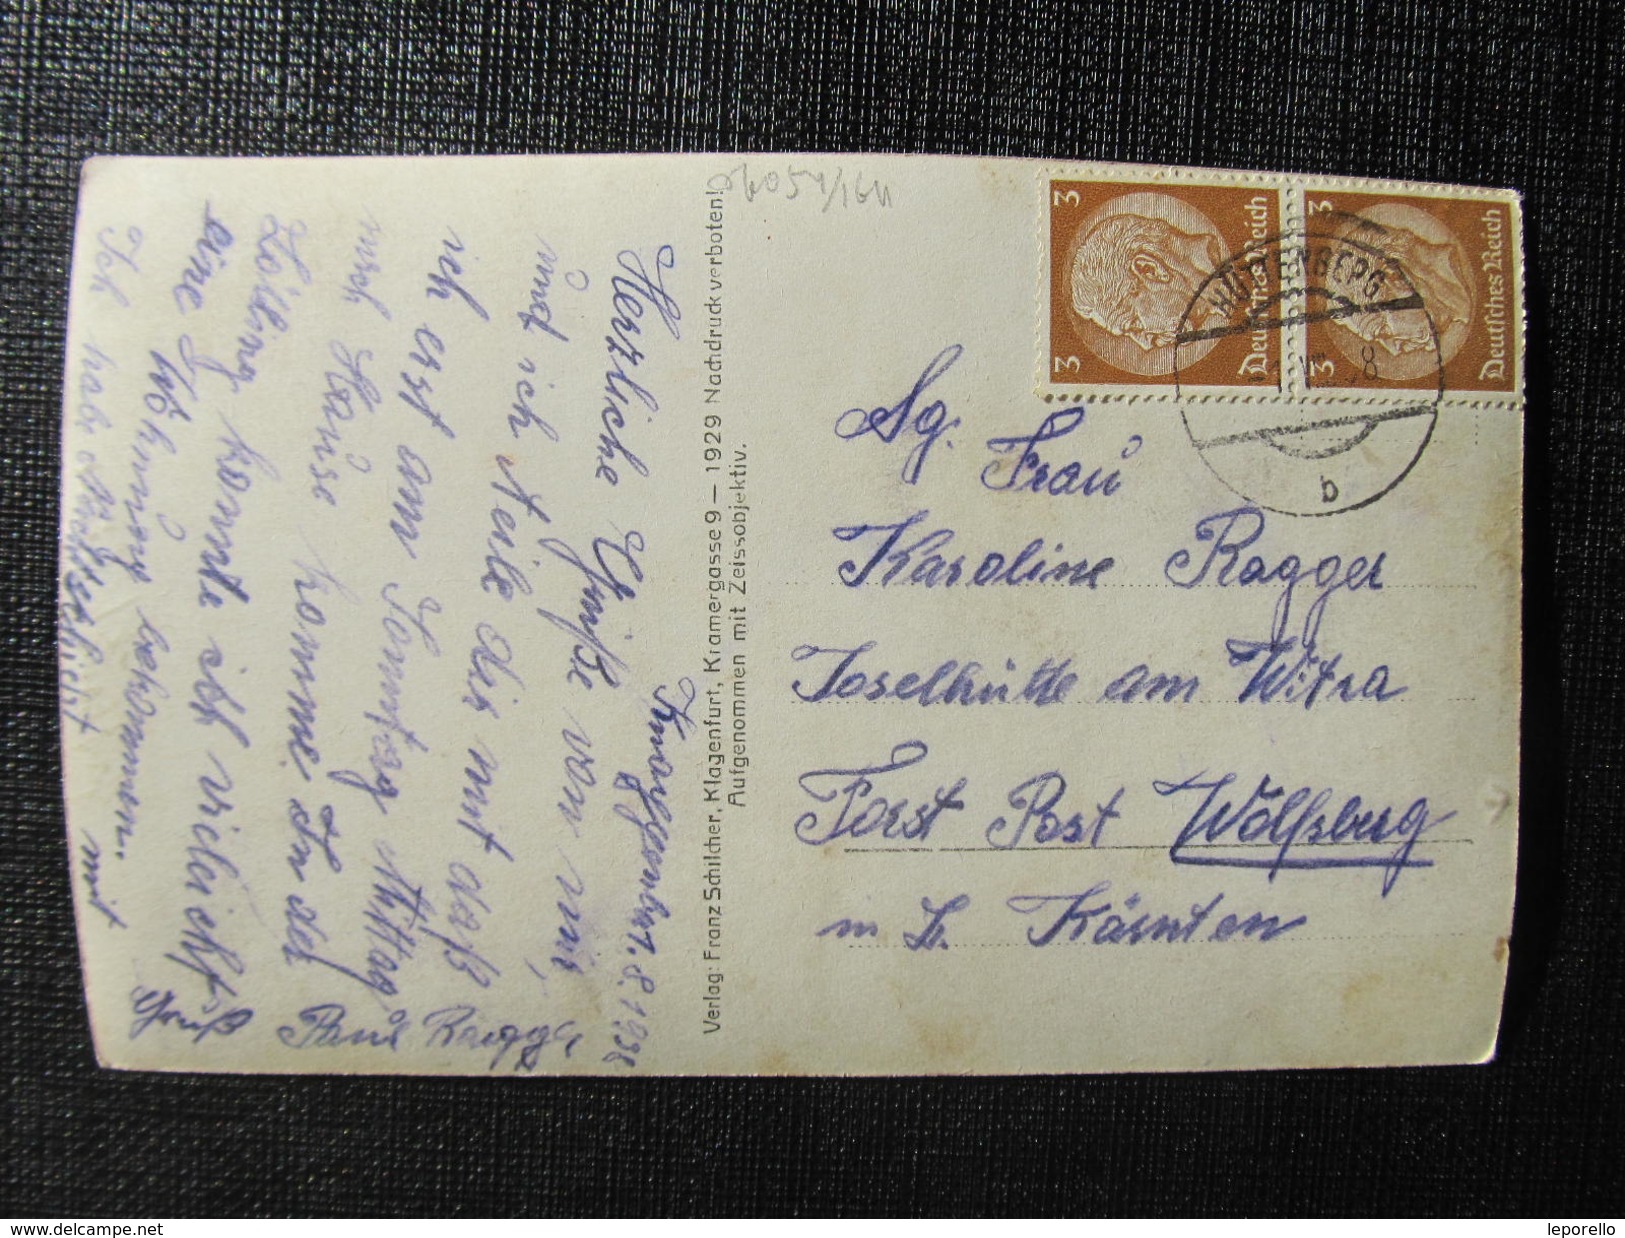 Knappenberg 1.8.1938
Herzliche Grüße von mir,
und ich teile dir mit daß
ich erst am Samstag Mittag
nach Hause komme. In der
Lölling konnte ich vielleicht
eine Wohnung bekommen.
Ich habe
mit
Gruß
Paul Ragger
Verlag: Franz Schilcher, Klagenfurt, Kramergasse 9 — 1929 Nachdruck verboten!
Aufgenommen mit Zeissobjektiv.
3 3 Deutsches Reich
3 3 Deutsches Reich
HÜTTENBERG
b
Sg. Frau
Karoline Ragger
Joselhütte am
Forst Post Wolfsberg
in Kärnten
www.delcampe.net
leporello